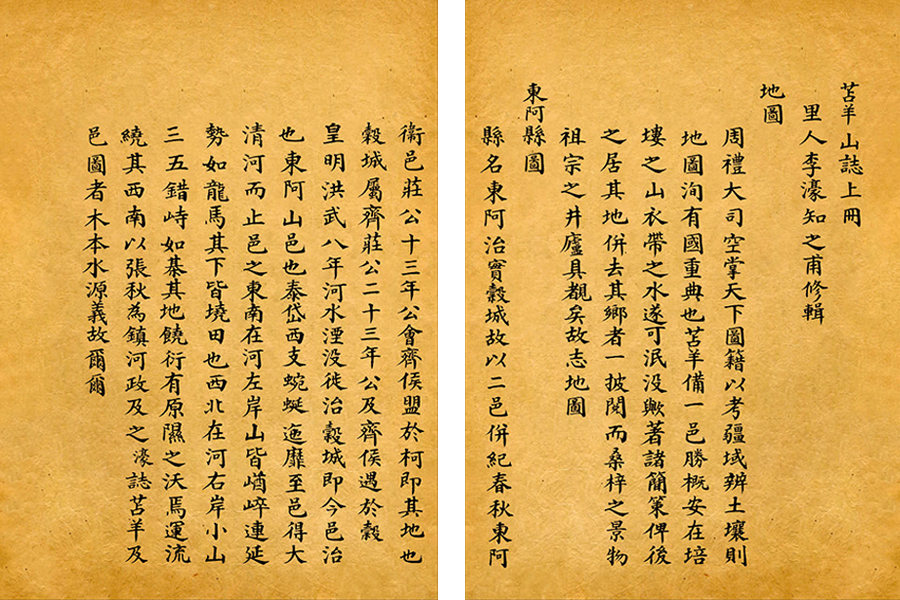 苫羊山誌上冊
里人李濠知之甫修輯
地圖
周禮大司空掌天下圖籍以考疆域辨土壤則
地圖洵有國重典也苫羊備一邑勝概安在培
塿之山衣帶之水遂可泯没歟著諸簡策俾後
之居其地併去其鄉者一披閱而桑梓之景物
祖宗之井廬具覩矣故志地圖
東阿縣圖
縣名東阿治實穀城故以二邑併紀春秋東阿
衞邑莊公十三年公會齊侯盟於柯即其地也
穀城屬齊莊公二十三年公及齊侯遇於穀
皇明洪武八年河水湮没徙治穀城即今邑治
也東阿山邑也泰岱西支蜿蜒迤靡至邑得大
清河而止邑之東南在河左岸山皆崷崪連延
勢如龍馬其下皆墝田也西北在河右岸小山
三五錯峙如棊其地饒衍有原隰之沃焉運流
繞其西南以張秋為鎮河政及之濠誌苫羊及
邑圖者木本水源義故爾爾